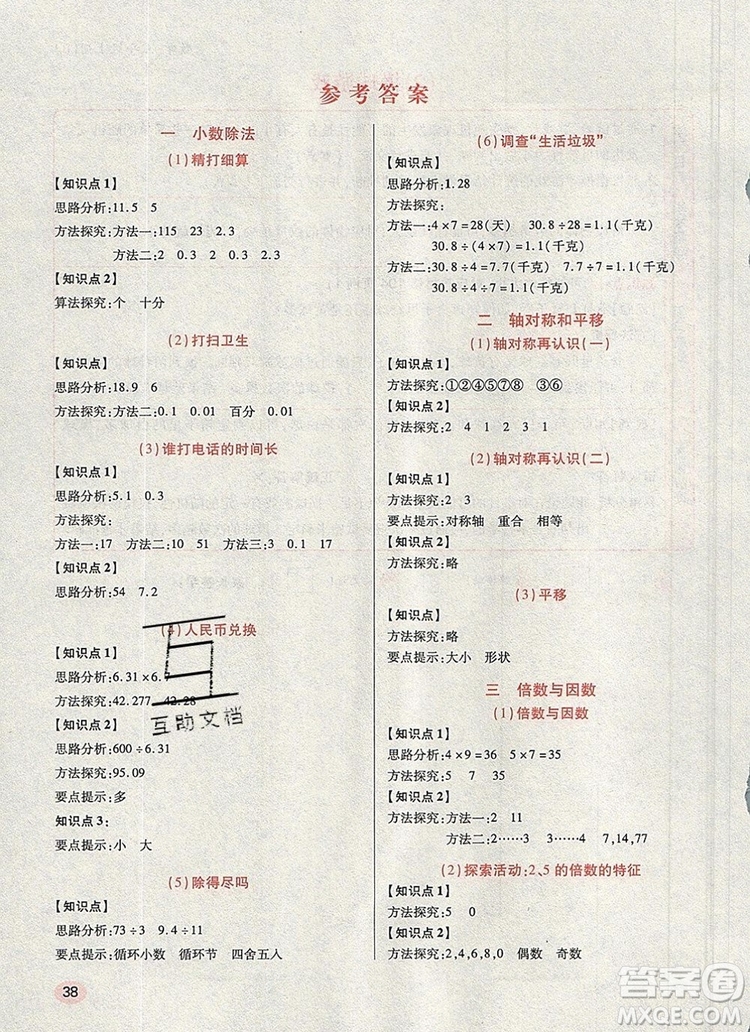 参考答案
一 小数除法
(1)精打细算
【知识点1】
思路分析:11.5 5
方法探究:方法一:115 23 2.3
方法二:2 0.3 2.3
【知识点2】
算法探究:个 十分
(2)打扫卫生
思路分析:18.9 6
方法探究:方法二:0.1 0.01 百分 0.01
(3)谁打电话的时间长
【知识点1】
思路分析:5.1 0.3
方法探究:
方法一:17 方法二:10 51 方法三:3 0.1 17
【知识点2】
思路分析:54 7.2
(4)人民币兑换
【知识点1】
思路分析:6.31×7.9
方法探究:42.277 42.28
【知识点2】
思路分析:600÷6.31
方法探究:95.09
要点提示:多
知识点3:
要点提示:小 大
(5)除得尽吗
【知识点1】
思路分析:73÷3 9.4÷11
要点提示:循环小数 循环节 四舍五人
38
(6)调查“生活垃圾”
【知识点1】
思路分析:1.28
方法探究:
方法一:4×7=28(天) 30.8÷28=1.1(千克)
30.8÷(4×7)=1.1(千克)
方法二:30.8÷4=7.7(千克) 7.7÷7=1.1(千克)
30.8÷4÷7=1.1(千克)
二 轴对称和平移
(1)轴对称再认识(一)
【知识点1】
方法探究:①②④⑤⑦⑧ ③⑥
【知识点2】
方法探究:2 4 1 2 3 1
(2)轴对称再认识(二)
【知识点1】
方法探究:2 3
要点提示:对称轴 重合 相等
【知识点2】
方法探究:略
(3)平移
【知识点1】
方法探究:略
要点提示:大小 形状
三 倍数与因数
(1)倍数与因数
【知识点1】
思路分析:4×9=36 5×7=35
方法探究:4 9 36 5 7 35
【知识点2】
方法探究:方法一:2 11
方法二:2……3 4……6 7,14,77
(2)探索活动:2,5的倍数的特征
【知识点1】
方法探究:5 0
【知识点2】
方法探究:2,4,6,8,0 偶数 奇数
互助文档
答案圈
MXQE.COM